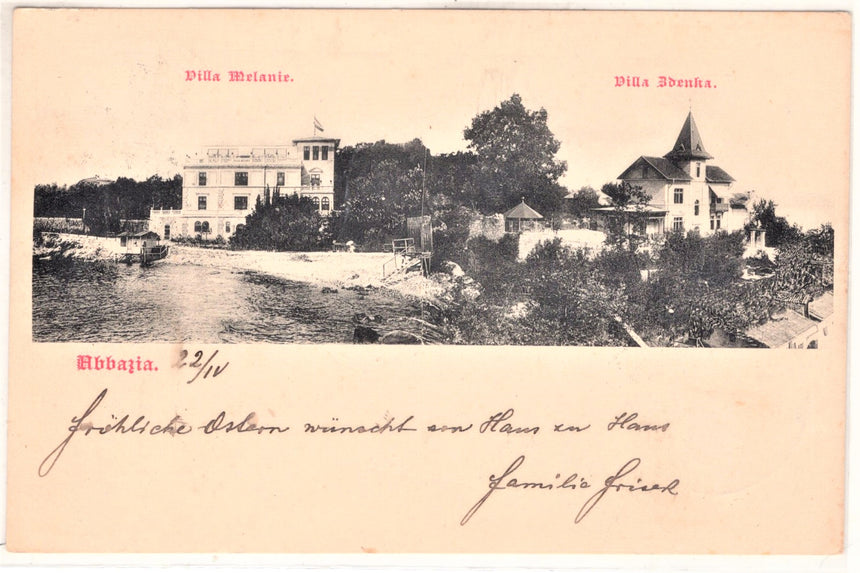 Villa Melanie.
Villa Zdenka.
Abbazia. 22/IV
Fröhliche Ostern wünscht von Haus zu Haus
Familie